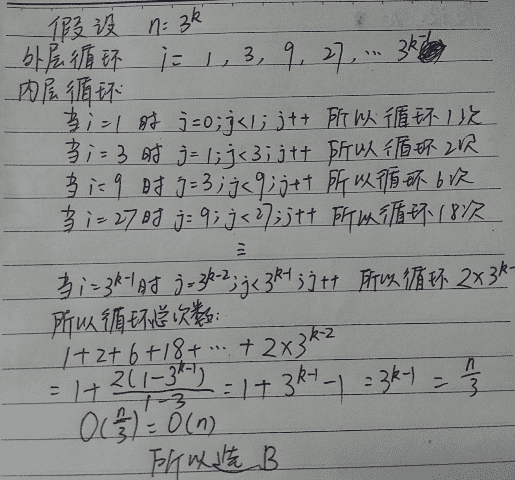 假设 n=3^k
外层循环 i= 1, 3, 9, 27, … 3^k-1
内层循环:
当i=1时 j=0;j<1;j++ 所以循环1次
当i=3时 j=1;j<3;j++ 所以循环2次
当i=9时 j=3;j<9;j++ 所以循环6次
当i=27时 j=9;j<27;j++ 所以循环18次
⋮
当i=3^k-1时 j=3^k-2;j<3^k-1;j++ 所以循环 2×3^k-
所以循环总次数:
1+2+6+18+…+2×3^k-2
=1+2(1-3^k-1)/1-3=1+3^k-1-1=3^k-1=n/3
O(n/3)=O(n)
所以选B